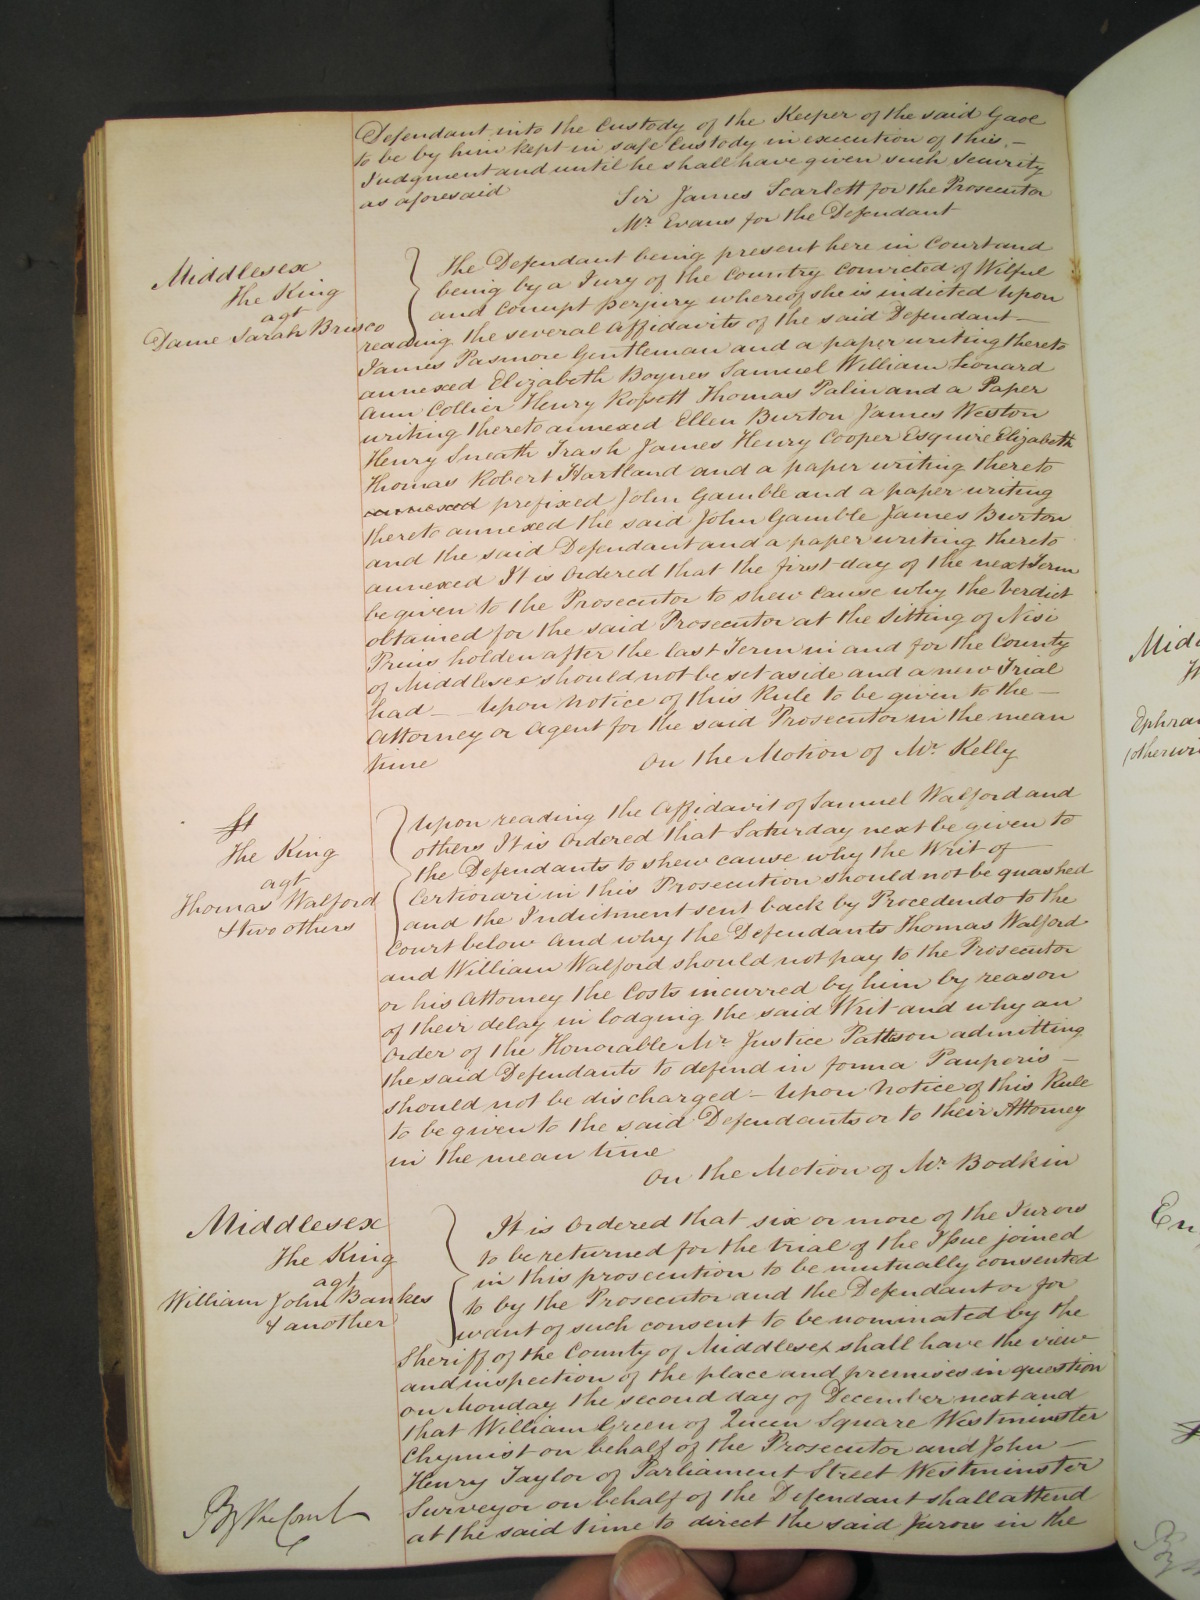 Defendant into the Custody of the Keeper of the said Gaol
to be by him kept in safe Custody in execution of this –
Judgment and until he shall have given such Security
as aforesaid
Sir James Scarlett for the Prosecutor
Mr. Evans for the Defendant
Middlesex
The King
agt
Dame Sarah Brisco
The Defendant being present here in Court and
being by a Jury of the Country convicted of Wilful
and Corrupt Perjury whereof she is indicted Upon
reading the several Affidavits of the said Defendant –
James Pasmore Gentleman and a paper writing thereto
annexed Elizabeth Boynes Samuel William Leonard
Ann Collier Henry Rossett Thomas Palin and a Paper
writing thereto annexed Ellen Burton James Weston
Henry Sneath Trash James Henry Cooper Esquire Elizabeth
Thomas Robert Hartland and a paper writing thereto
annexed prefixed John Gamble and a paper writing
thereto annexed the said John Gamble James Burton
and the said Defendant and a paper writing thereto
annexed It is Ordered that the first day of the next Term
be given to the Prosecutor to shew Cause why the Verdict
obtained for the said Prosecutor at the Sitting of Nisi
Prius holden after the last Term in and for the County
of Middlesex should not be set aside and a new Trial
had – Upon Notice of this Rule to be given to the –
Attorney or Agent for the said Prosecutor in the mean
time
On the Motion of Mr. Kelly
The King
agt
Thomas Walford
& two others
Upon reading the Affidavit of Samuel Walford and
others It is Ordered that Saturday next be given to
the Defendants to shew cause why the Writ of –
Certiorari in this Prosecution should not be quashed
and the Indictment sent back by Procedendo to the
Court below and why the Defendants Thomas Walford
and William Walford should not pay to the Prosecutor
or his Attorney the Costs incurred by him by reason
of their delay in lodging the said Writ and why an
Order of the Honorable Mr. Justice Patteson admitting
the said Defendants to defend in forma Pauperis –
should not be discharged – Upon Notice of this Rule
to be given to the said Defendants or to their Attorney
in the mean time
On the Motion of Mr. Bodkin
Middlesex
The King
agt
William John Bankes
& another
It is Ordered that six or more of the Jurors
to be returned for the trial of the Issue joined
in this prosecution to be mutually consented
to by the Prosecutor and the Defendant or for
want of such consent to be nominated by the
Sheriff of the County of Middlesex shall have the view
and inspection of the place and premises in question
on Monday the second day of December next and
that William Green of Queen Square Westminster
Chymist on behalf of the Prosecutor and John –
Henry Taylor of Parliament Street Westminster
Surveyor on behalf of the Defendant shall attend
at the said time to direct the said Jurors in the
By the Court